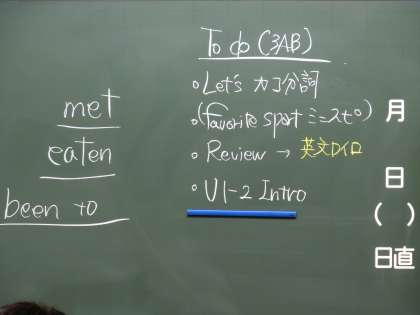 met
eaten
been to
To do (3AB)
・Let's カコ分詞
・(favorite sport ミニスピ)
・Review → 英文ワイロ
・U1-2 Intro
月
日
( )
日直